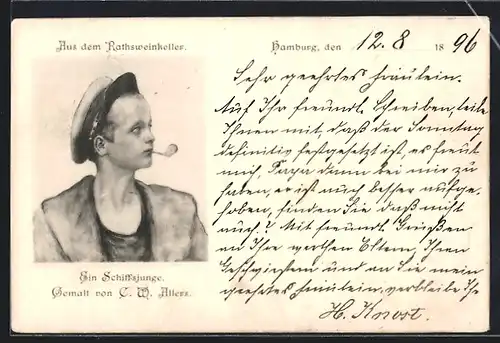 Aus dem Rathsweinkeller.
Hamburg, den 12. 8 18 96
Sehr geehrtes Fräulein.
Auf Ihr freundl. Schreiben, teile
Ihnen mit, daß der Sonntag
definitiv festgesetzt ist, es freut
mich, Papa dann bei mir zu
haben, er ist auch besser aufge-
hoben, finden Sie daß nicht
auch? Mit freundl. Grüßen
an Ihre werthen Eltern, Ihren
Geschwistern und an Sie mein
geehrtes Fräulein, verbleibe Ihr
H. Knost.
Ein Schiffsjunge.
Gemalt von C. W. Allers.